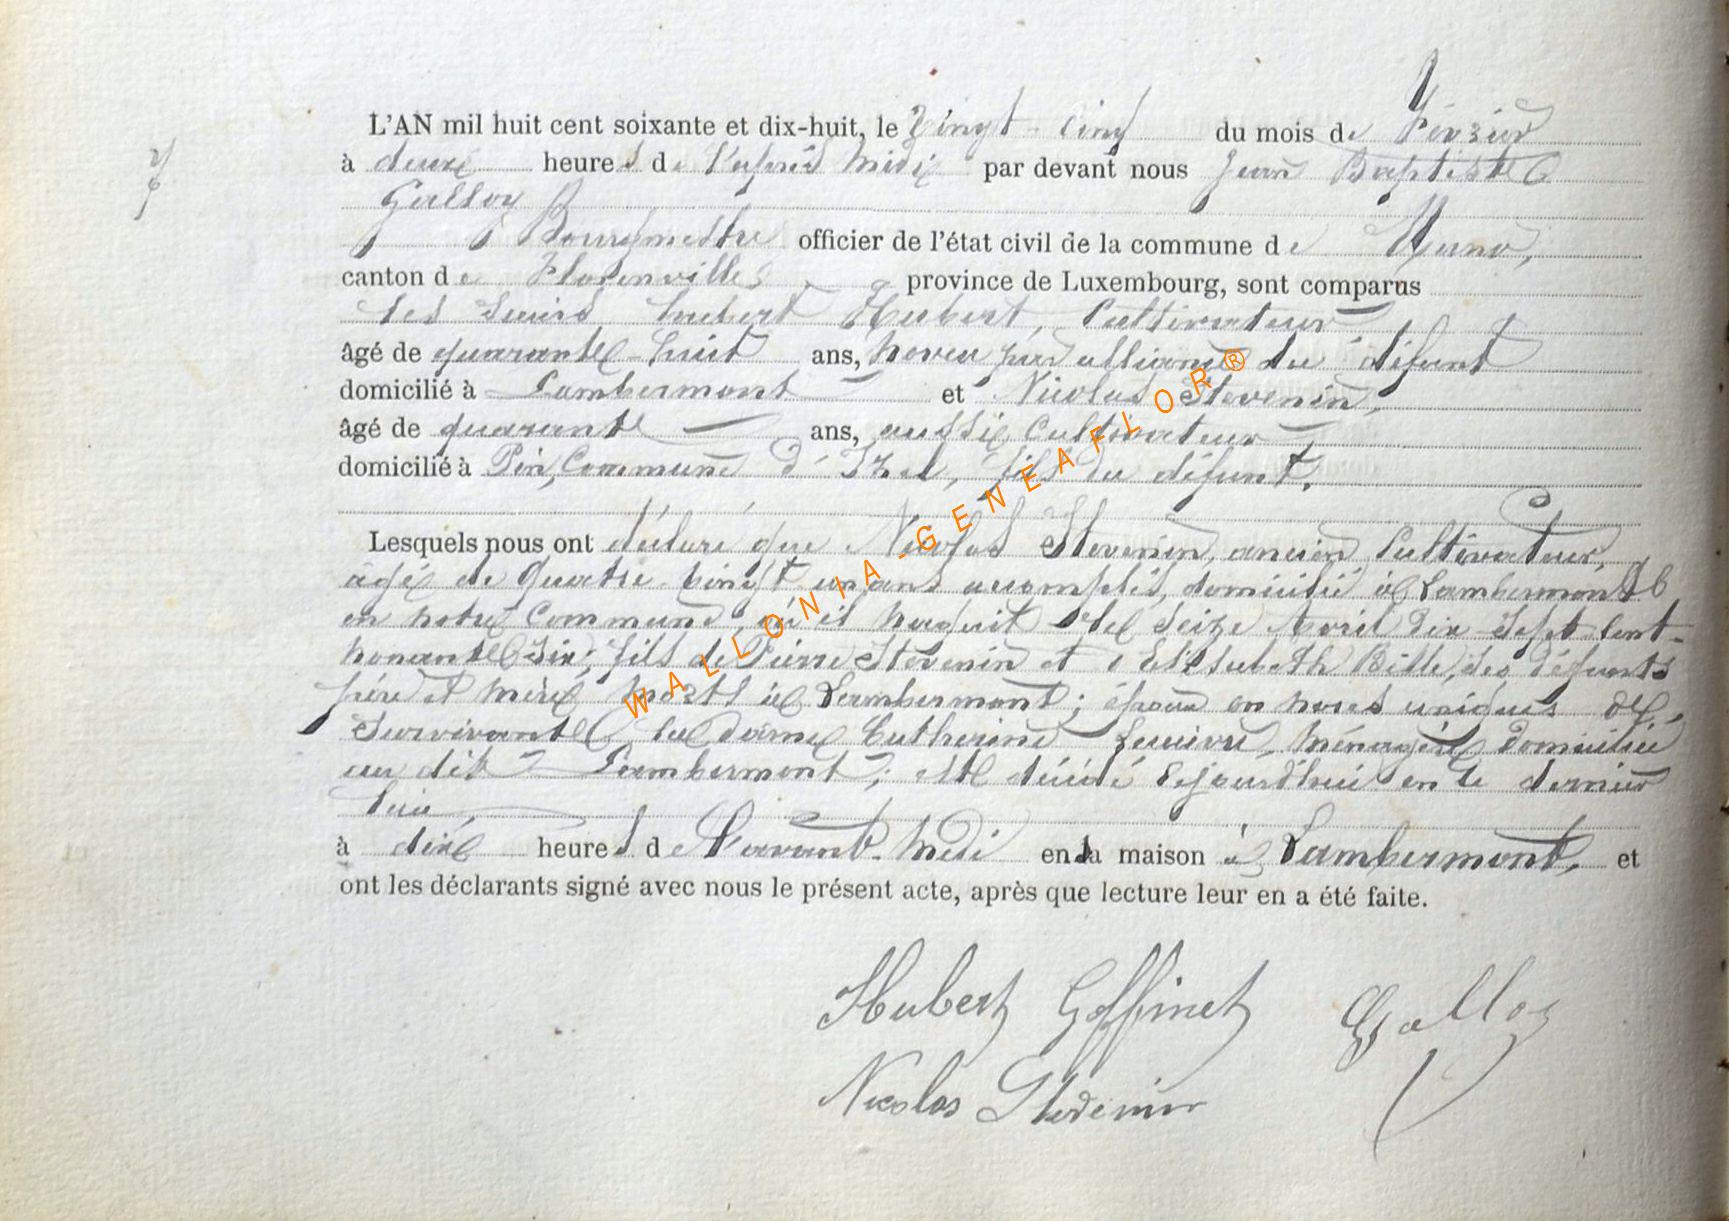 7
L'AN mil huit cent soixante et dix-huit, le Vingt-Cinq du mois de Février
à deux heures de l'après midi par devant nous Jean Baptiste
Galloy
Bourgmestre officier de l'état civil de la commune de Muno,
canton de Florenville province de Luxembourg, sont comparus
les sieurs Hubert, Cultivateur
âgé de quarante-huit ans, neveu par alliance du défunt
domicilié à Lambermont et Nicolas Stevenin,
âgé de quarante ans, aussi Cultivateur,
domicilié à Pin, Commune d'Izel, fils du défunt,
Lesquels nous ont déclaré que Nicolas Stevenin, ancien Cultivateur,
âgé de Quatre-vingt un ans accomplis, domicilié à Lambermont
en notre Commune, où il naquit le seize Avril Dix-Sept-Cent-
nonante Six; fils de Pierre Stevenin et d'Elisabeth Bille, ses défunts
père et mère morts à Lambermont; époux en noces uniques de
Survivante la dame Catherine Lecuivre, ménagère domiciliée
au dit Lambermont; est décédé aujourd'hui en ce dernier
lieu,
à dix heures de l'avant-midi en la maison à Lambermont, et
ont les déclarants signé avec nous le présent acte, après que lecture leur en a été faite.
Hubert Goffinet Galloy
Nicolas Stevenin
WALLONIA-GENEAFLOR®